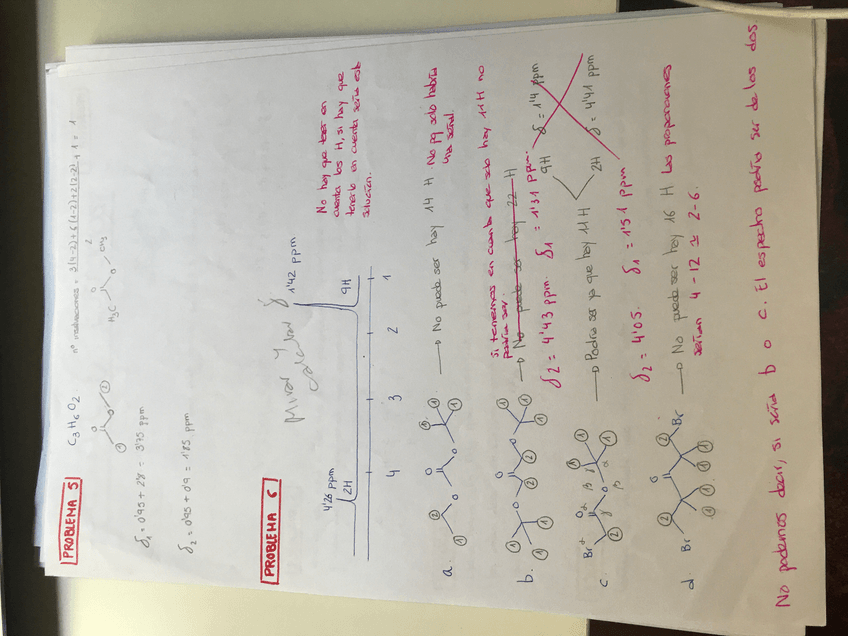 PROBLEMA 5
C3H6O2
nº insaturaciones = 3(4-2)+6(1-2)+2(2-2)/2 + 1 = 1
H3C
O
O
CH3
O
O
1
2
δ1 = 0'95 + 2'8 = 3'75 ppm
δ2 = 0'95 + 0'9 = 1'85 ppm
PROBLEMA 6
Mirar y calcular δ
4'26 ppm
2H
1'42 ppm
9H
4
3
2
1
No hay que tener en
cuenta los H, si hay que
tenerlo en cuenta sería esta
solución.
a.
→ No puede ser hay 14 H. No pq solo habría
una señal.
si tenemos en cuenta que solo hay 11H no
podría ser.
b.
→ No puede ser hay 22 H
δ2 = 4'43 ppm. δ1 = 1'31 ppm.
c
Br
→ Podría ser ya que hay 11H
9H δ = 1'4 ppm
2H δ = 4'41 ppm
δ2 = 4'05. δ1 = 1'51 ppm
d.
Br
Br
→ No puede ser hay 16 H. Las proporciones
serían 4-12 ≃ 2-6.
No podemos decir, si sería b o c. El espectro podría ser de los dos.